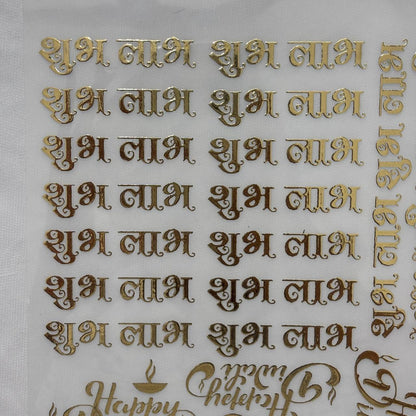 शुभ लाभ शुभ लाभ
शुभ लाभ शुभ लाभ
शुभ लाभ शुभ लाभ
शुभ लाभ शुभ लाभ
शुभ लाभ शुभ लाभ
शुभ लाभ शुभ लाभ
शुभ लाभ शुभ लाभ
Happy
Diwali
Happy